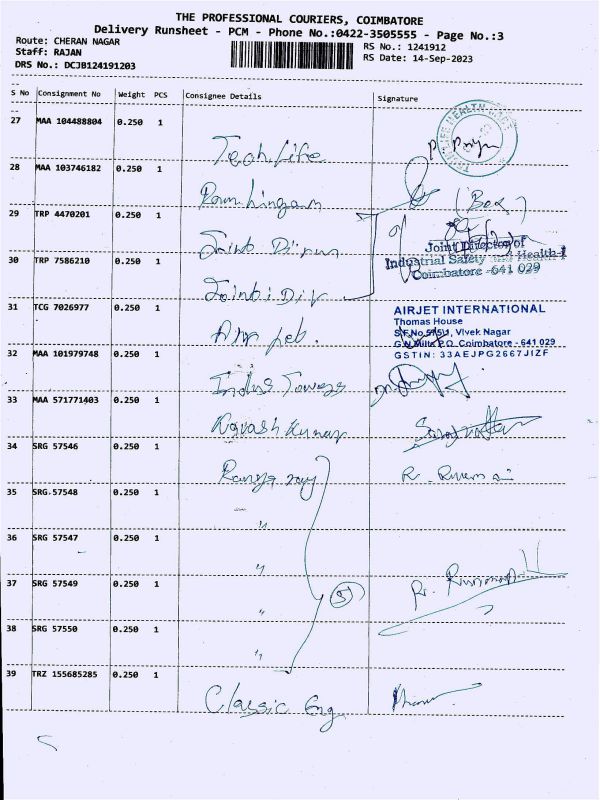 THE PROFESSIONAL COURIERS, COIMBATORE
Delivery Runsheet - PCM - Phone No.:0422-3505555 - Page No.:3
Route: CHERAN NAGAR
RS No.: 1241912
Staff: RAJAN
RS Date: 14-Sep-2023
DRS No.: DCJB124191203
S No Consignment No Weight PCS Consignee Details Signature
27 MAA 104488804 0.250 1
Tech Life
28 MAA 103746182 0.250 1
(Box)
29 TRP 4470201 0.250 1
Joint
Joint Director of
30 TRP 7586210 0.250 1
Industrial Safety and Health-I
Coimbatore -641 029
Joint Dir
31 TCG 7026977 0.250 1
AIRJET INTERNATIONAL
Thomas House
S.F.No.575/1, Vivek Nagar
G.N.Mills P.O. Coimbatore - 641 029
GSTIN: 33AEJPG2667J1ZF
32 MAA 101979748 0.250 1
Indus Towers
33 MAA 571771403 0.250 1
Kumar
34 SRG 57546 0.250 1
35 SRG 57548 0.250 1
"
36 SRG 57547 0.250 1
"
37 SRG 57549 0.250 1
"
(5)
38 SRG 57550 0.250 1
"
39 TRZ 155685285 0.250 1
Classic Eng